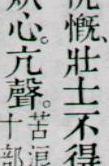 忼慨、壯士不得
从心。亢聲。苦浪
十部